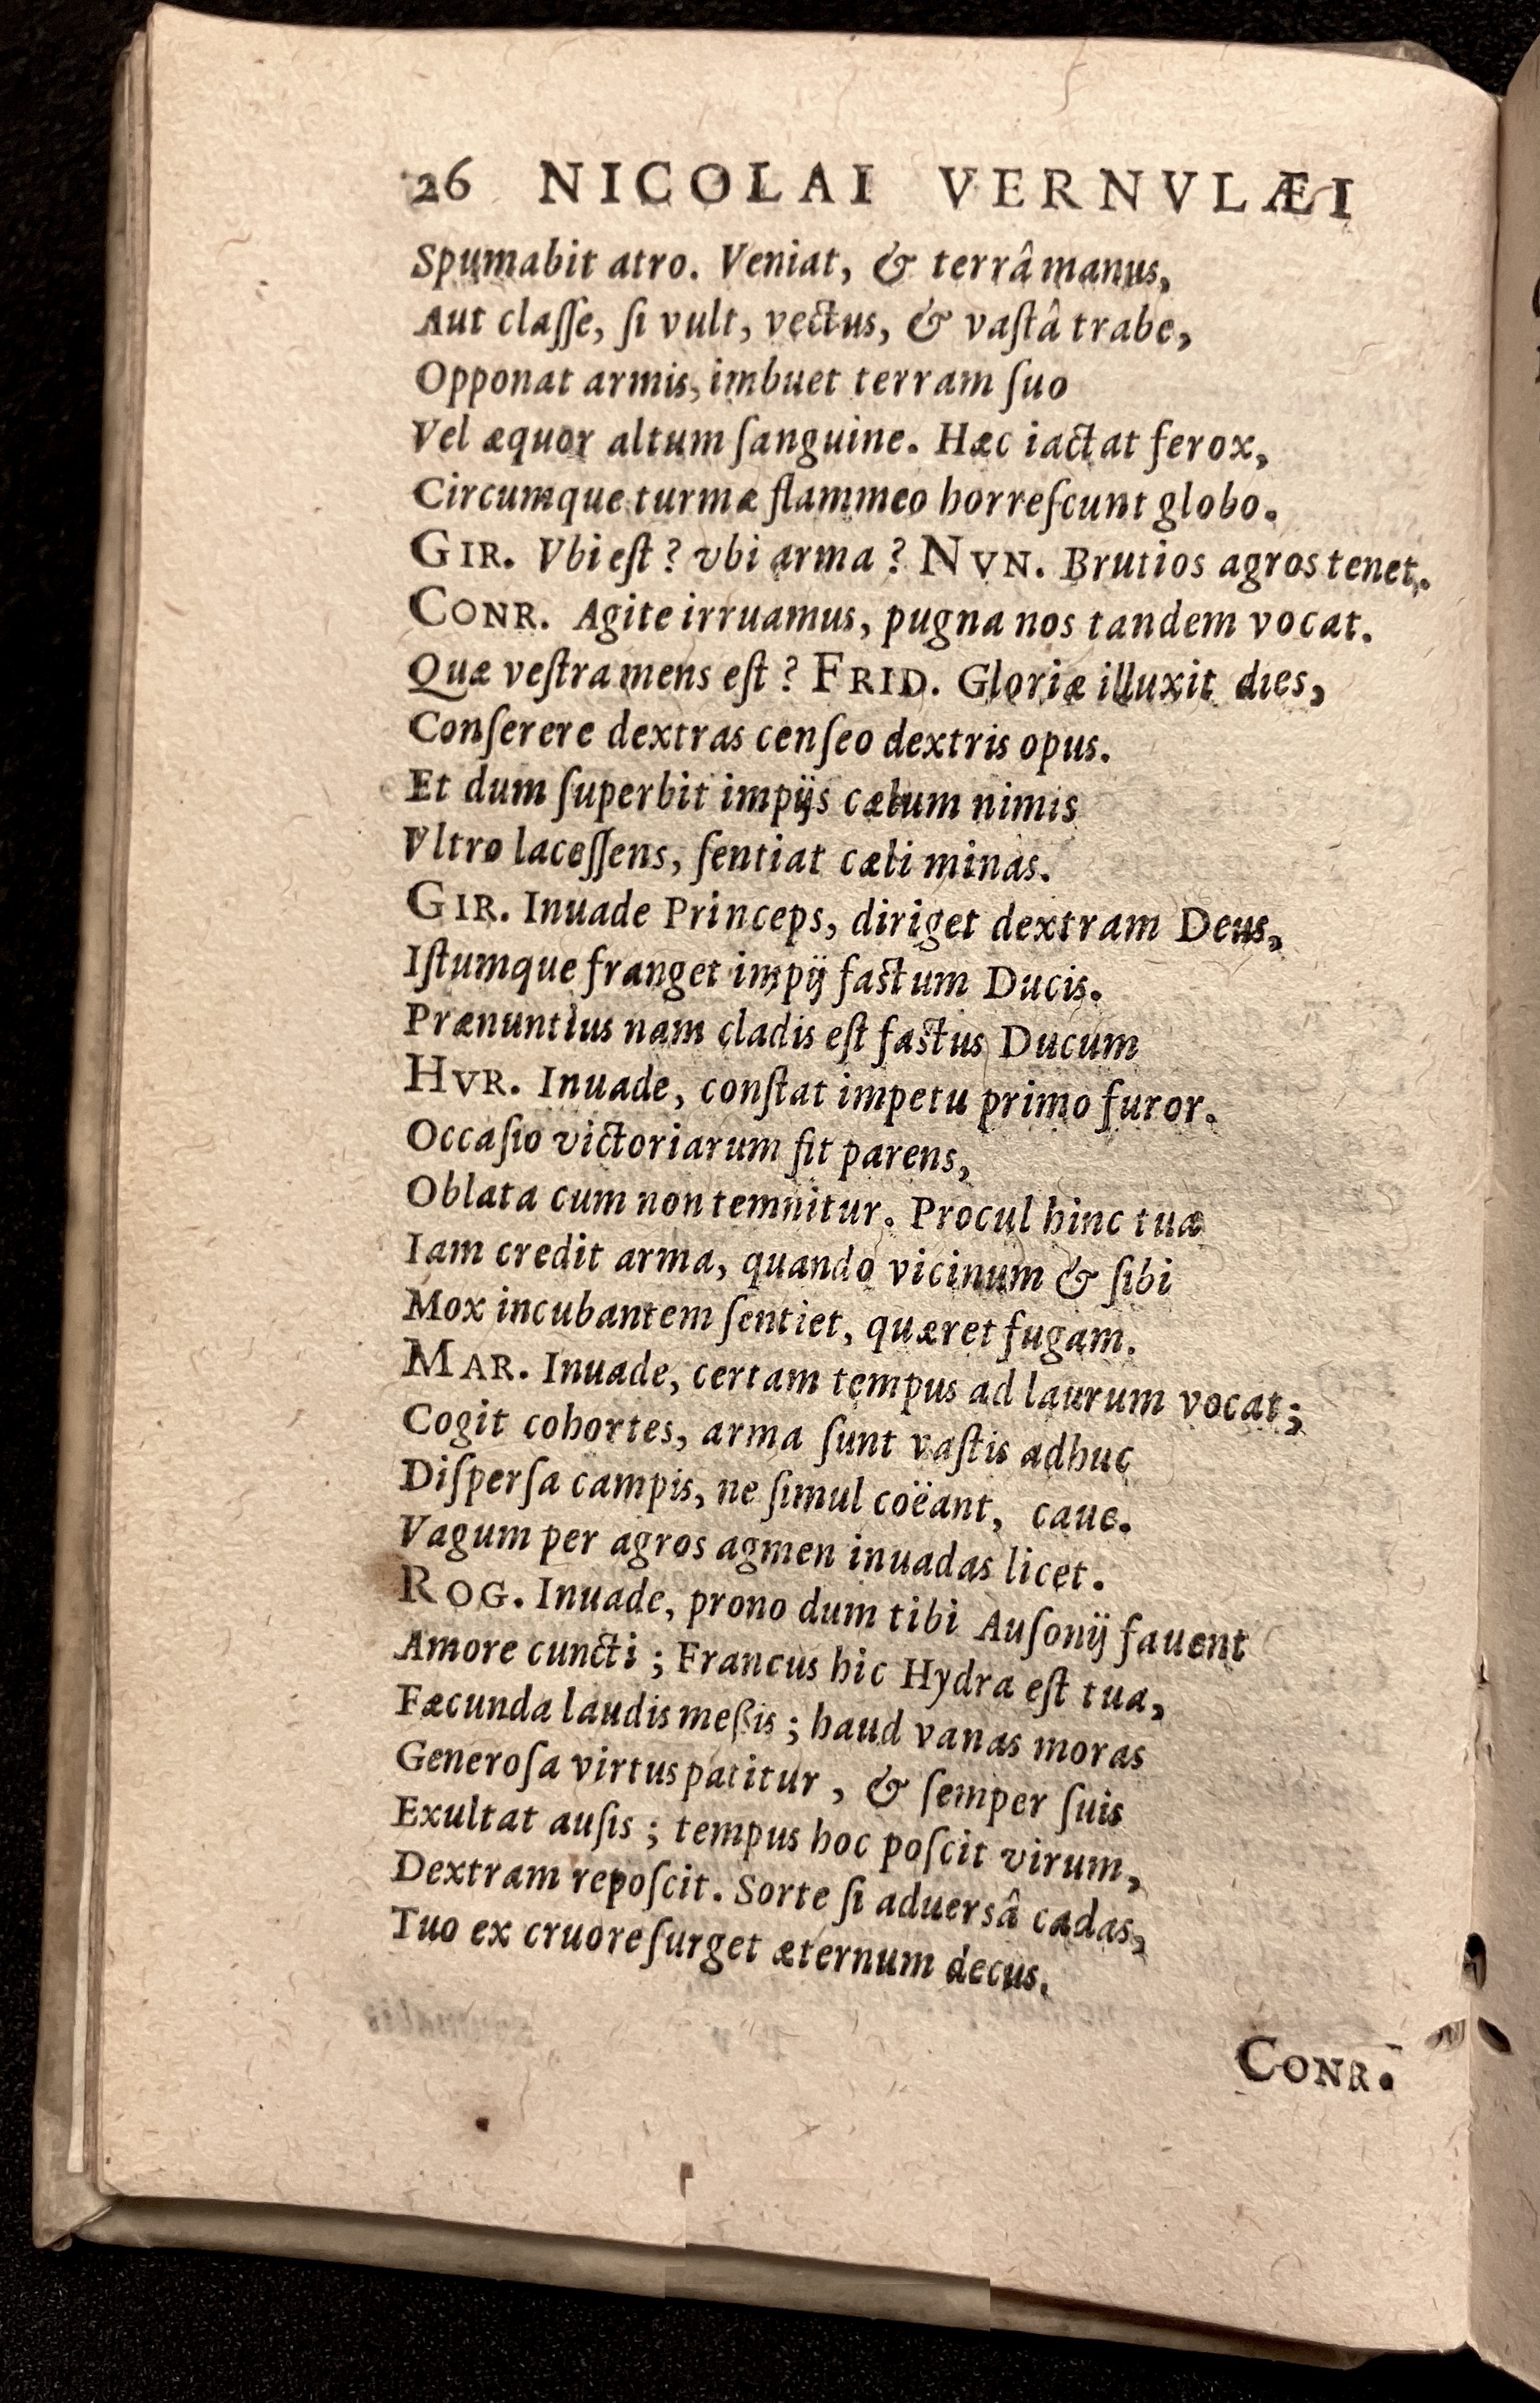 26 NICOLAI VERNVLÆI
Spumabit atro. Veniat, & terrâ manus,
Aut claſſe, ſi vult, vectus, & vaſtâ trabe,
Opponat armis, imbuet terram ſuo
Vel æquor altum ſanguine. Hæc iactat ferox,
Circumque turmæ flammeo horreſcunt globo.
GIR. Vbi eſt? vbi arma? NVN. Brutios agros tenet.
CONR. Agite irruamus, pugna nos tandem vocat.
Quæ veſtra mens eſt? FRID. Gloriæ illuxit dies,
Conſerere dextras cenſeo dextris opus.
Et dum ſuperbit impijs cælum nimis
Vltro laceſſens, ſentiat cæli minas.
GIR. Inuade Princeps, diriget dextram Deus,
Iſtumque franget impij faſtum Ducis.
Prænuntius nam cladis eſt faſtus Ducum
HVR. Inuade, conſtat impetu primo furor.
Occaſio victoriarum fit parens,
Oblata cum non temnitur. Procul hinc tua
Iam credit arma, quando vicinum & ſibi
Mox incubantem ſentiet, quæret fugam.
MAR. Inuade, certam tempus ad laurum vocat;
Cogit cohortes, arma ſunt vaſtis adhuc
Diſperſa campis, ne ſimul coëant, caue.
Vagum per agros agmen inuadas licet.
ROG. Inuade, prono dum tibi Auſonij fauent
Amore cuncti; Francus hic Hydra eſt tua,
Fæcunda laudis meßis; haud vanas moras
Generoſa virtus patitur, & ſemper ſuis
Exultat auſis; tempus hoc poſcit virum,
Dextram repoſcit. Sorte ſi aduersâ cadas,
Tuo ex cruore ſurget æternum decus.
CONR.